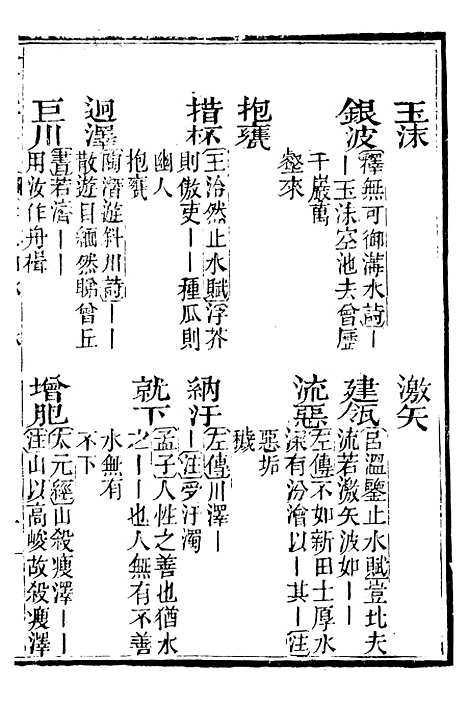 玉沫
銀波
釋無可御溝水詩——
玉沫空池夫曾歷
千巖萬
壑來
抱甕
措杯
王泠然止水賦浮芥
則傲吏——種瓜則
幽人
抱甕
迴澤
陶潛遊斜川詩——
散遊目緬然睇曾丘
巨川
書若濟——
用汝作舟楫
激矢
建瓴
呂溫鑒止水賦豈比夫
流若激矢波如——
流惡
左傳不如新田土厚水
深有汾澮以—其—注
惡垢
穢
納汙
左傳川澤—
—注受汙濁
就下
孟子人性之善也猶水
之——也人無有不善
水無有
不下
增肥
太元經山殺瘦澤——
注山以高峻故殺瘦澤